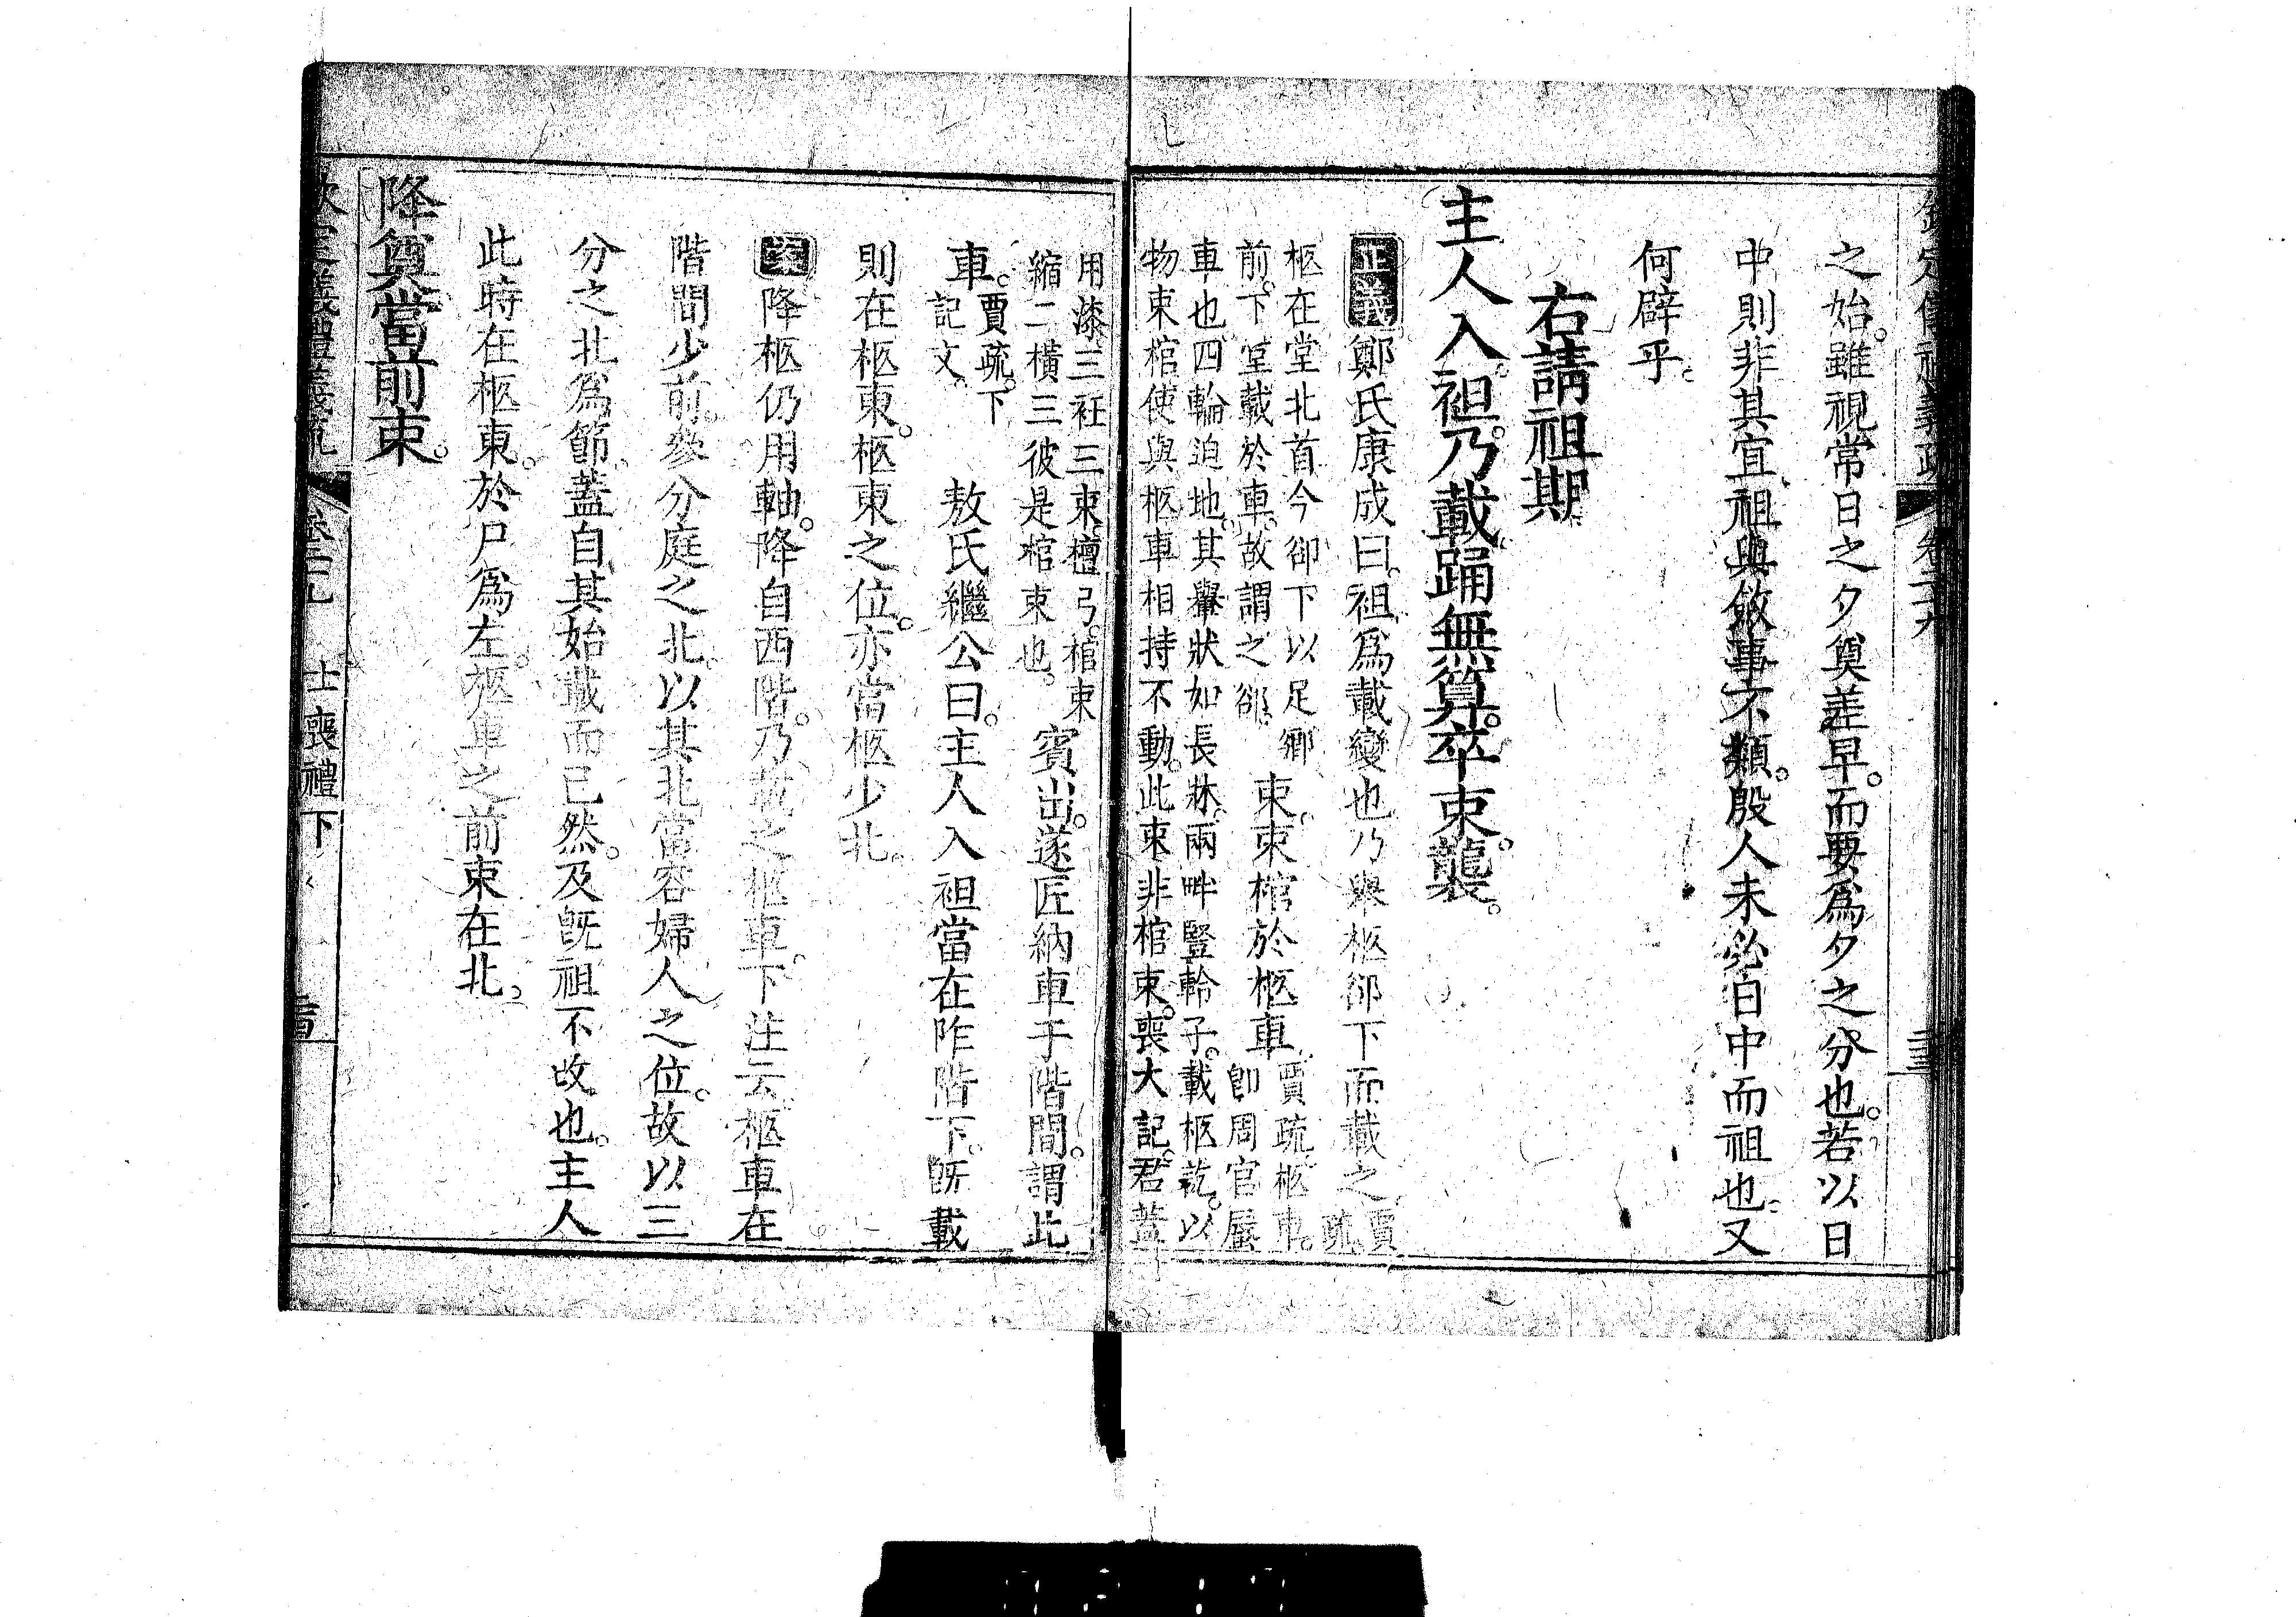 之始。雖視常日之夕奠差早。而要爲夕之分也。若以日
中則非其宜。祖與斂事不類。殷人未必日中而祖也。又
何辟乎。
右請祖期
主人入袒。乃載。踊無算。卒束。襲。
正義 鄭氏康成曰。袒爲載變也。乃舉柩卻下而載之。賈疏。
柩在堂北首。今卻下以足鄉
前。下堂載於車。故謂之卻。
束。束棺於柩車。
賈疏。柩車。
卽周官蜃
車也。四輪迫地。其轝狀如長牀。兩畔豎軨子。載柩訖。以
物束棺。使與柩車相持不動。此束非棺束。喪大記。君蓋
用漆。三衽三束。檀弓。棺束
縮二橫三。彼是棺束也。
賓出。遂匠納車于階間。謂此
車。
賈疏。下
記文。
敖氏繼公曰。主人入袒。當在阼階下。旣載
則在柩東。柩東之位。亦當柩少北。
案 降柩仍用軸。降自西階。乃載之柩車。下注云柩車在
階間少前。參分庭之北。以其北當容婦人之位。故以三
分之北爲節。蓋自其始載而已然。及旣祖不改也。主人
此時在柩東。於尸爲左。柩車之前束在北。
降奠當前束。
卷二十九 士喪禮下